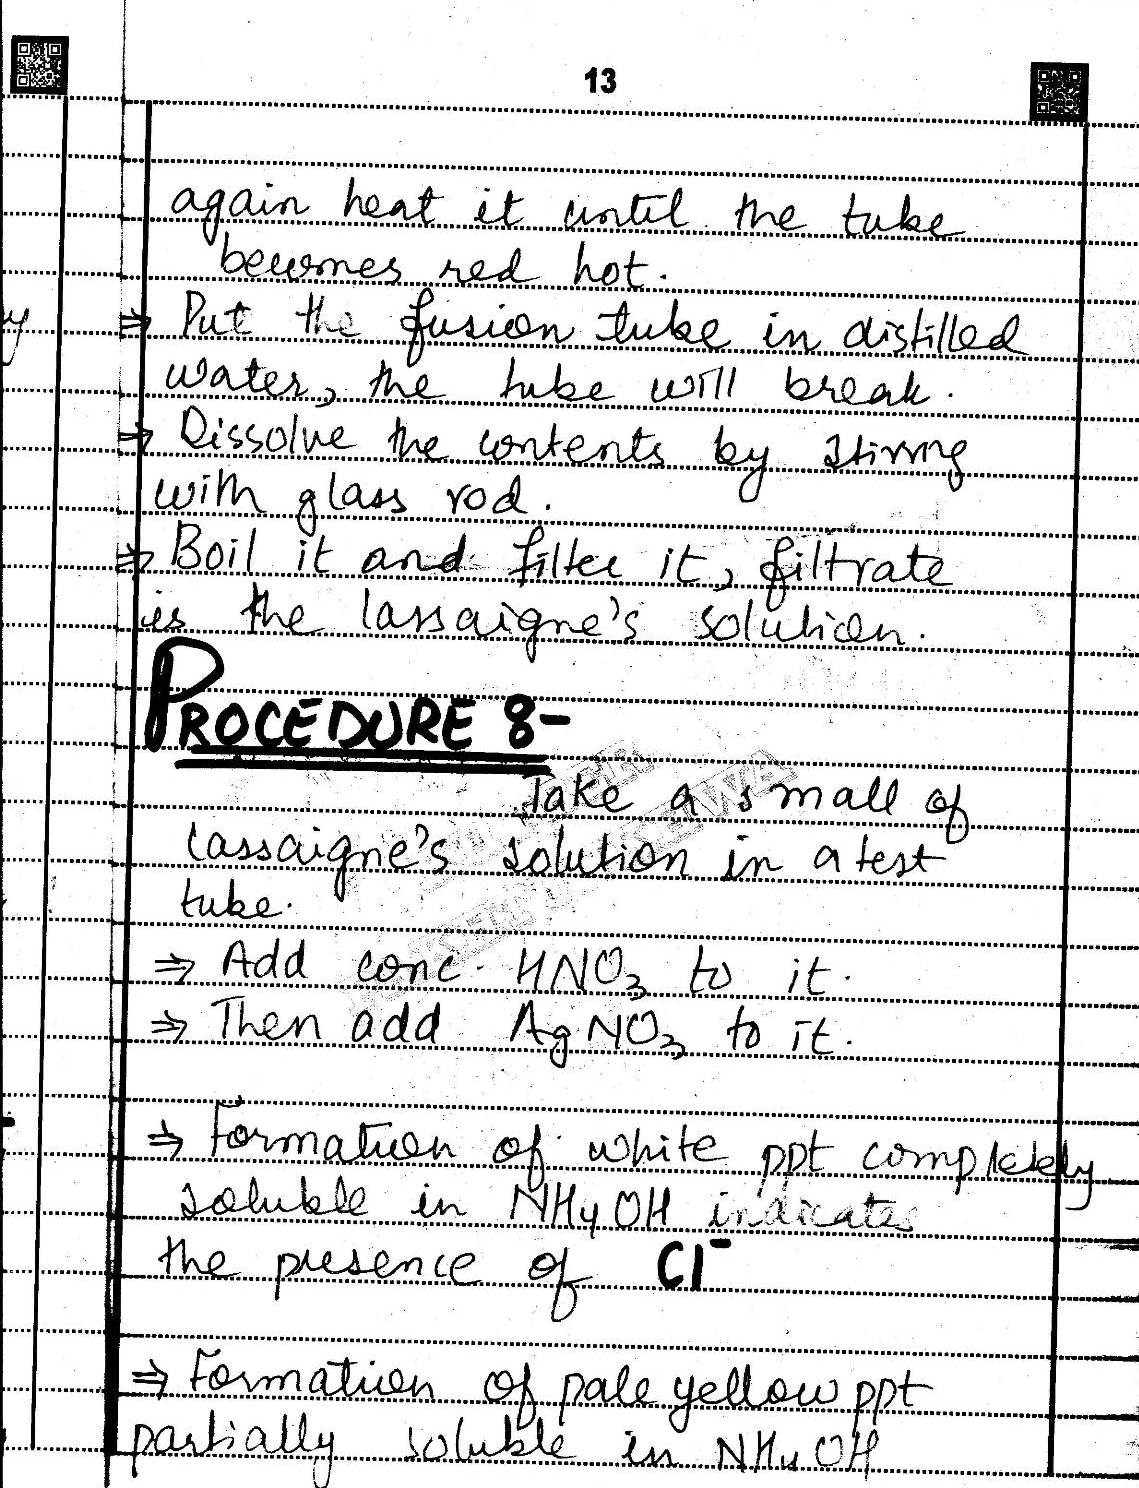 13
again heat it until the tube
becomes red hot.
⇒ Put the fusion tube in distilled
water, the tube will break.
⇒ Dissolve the contents by stirring
with glass rod.
⇒ Boil it and filter it, filtrate
is the lassaigne's solution.
PROCEDURE 8-
Take a small of
lassaigne's solution in a test
tube.
⇒ Add conc. HNO3 to it.
⇒ Then add AgNO3 to it.
⇒ Formation of white ppt completely
soluble in NH4OH indicates
the presence of Cl⁻
⇒ Formation of pale yellow ppt
partially soluble in NH4OH
y